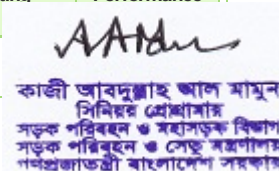 Performance
কাজী আবদুল্লাহ আল মামুন
সিনিয়র প্রোগ্রামার
সড়ক পরিবহন ও মহাসড়ক বিভাগ
সড়ক পরিবহন ও সেতু মন্ত্রণালয়
গণপ্রজাতন্ত্রী বাংলাদেশ সরকার